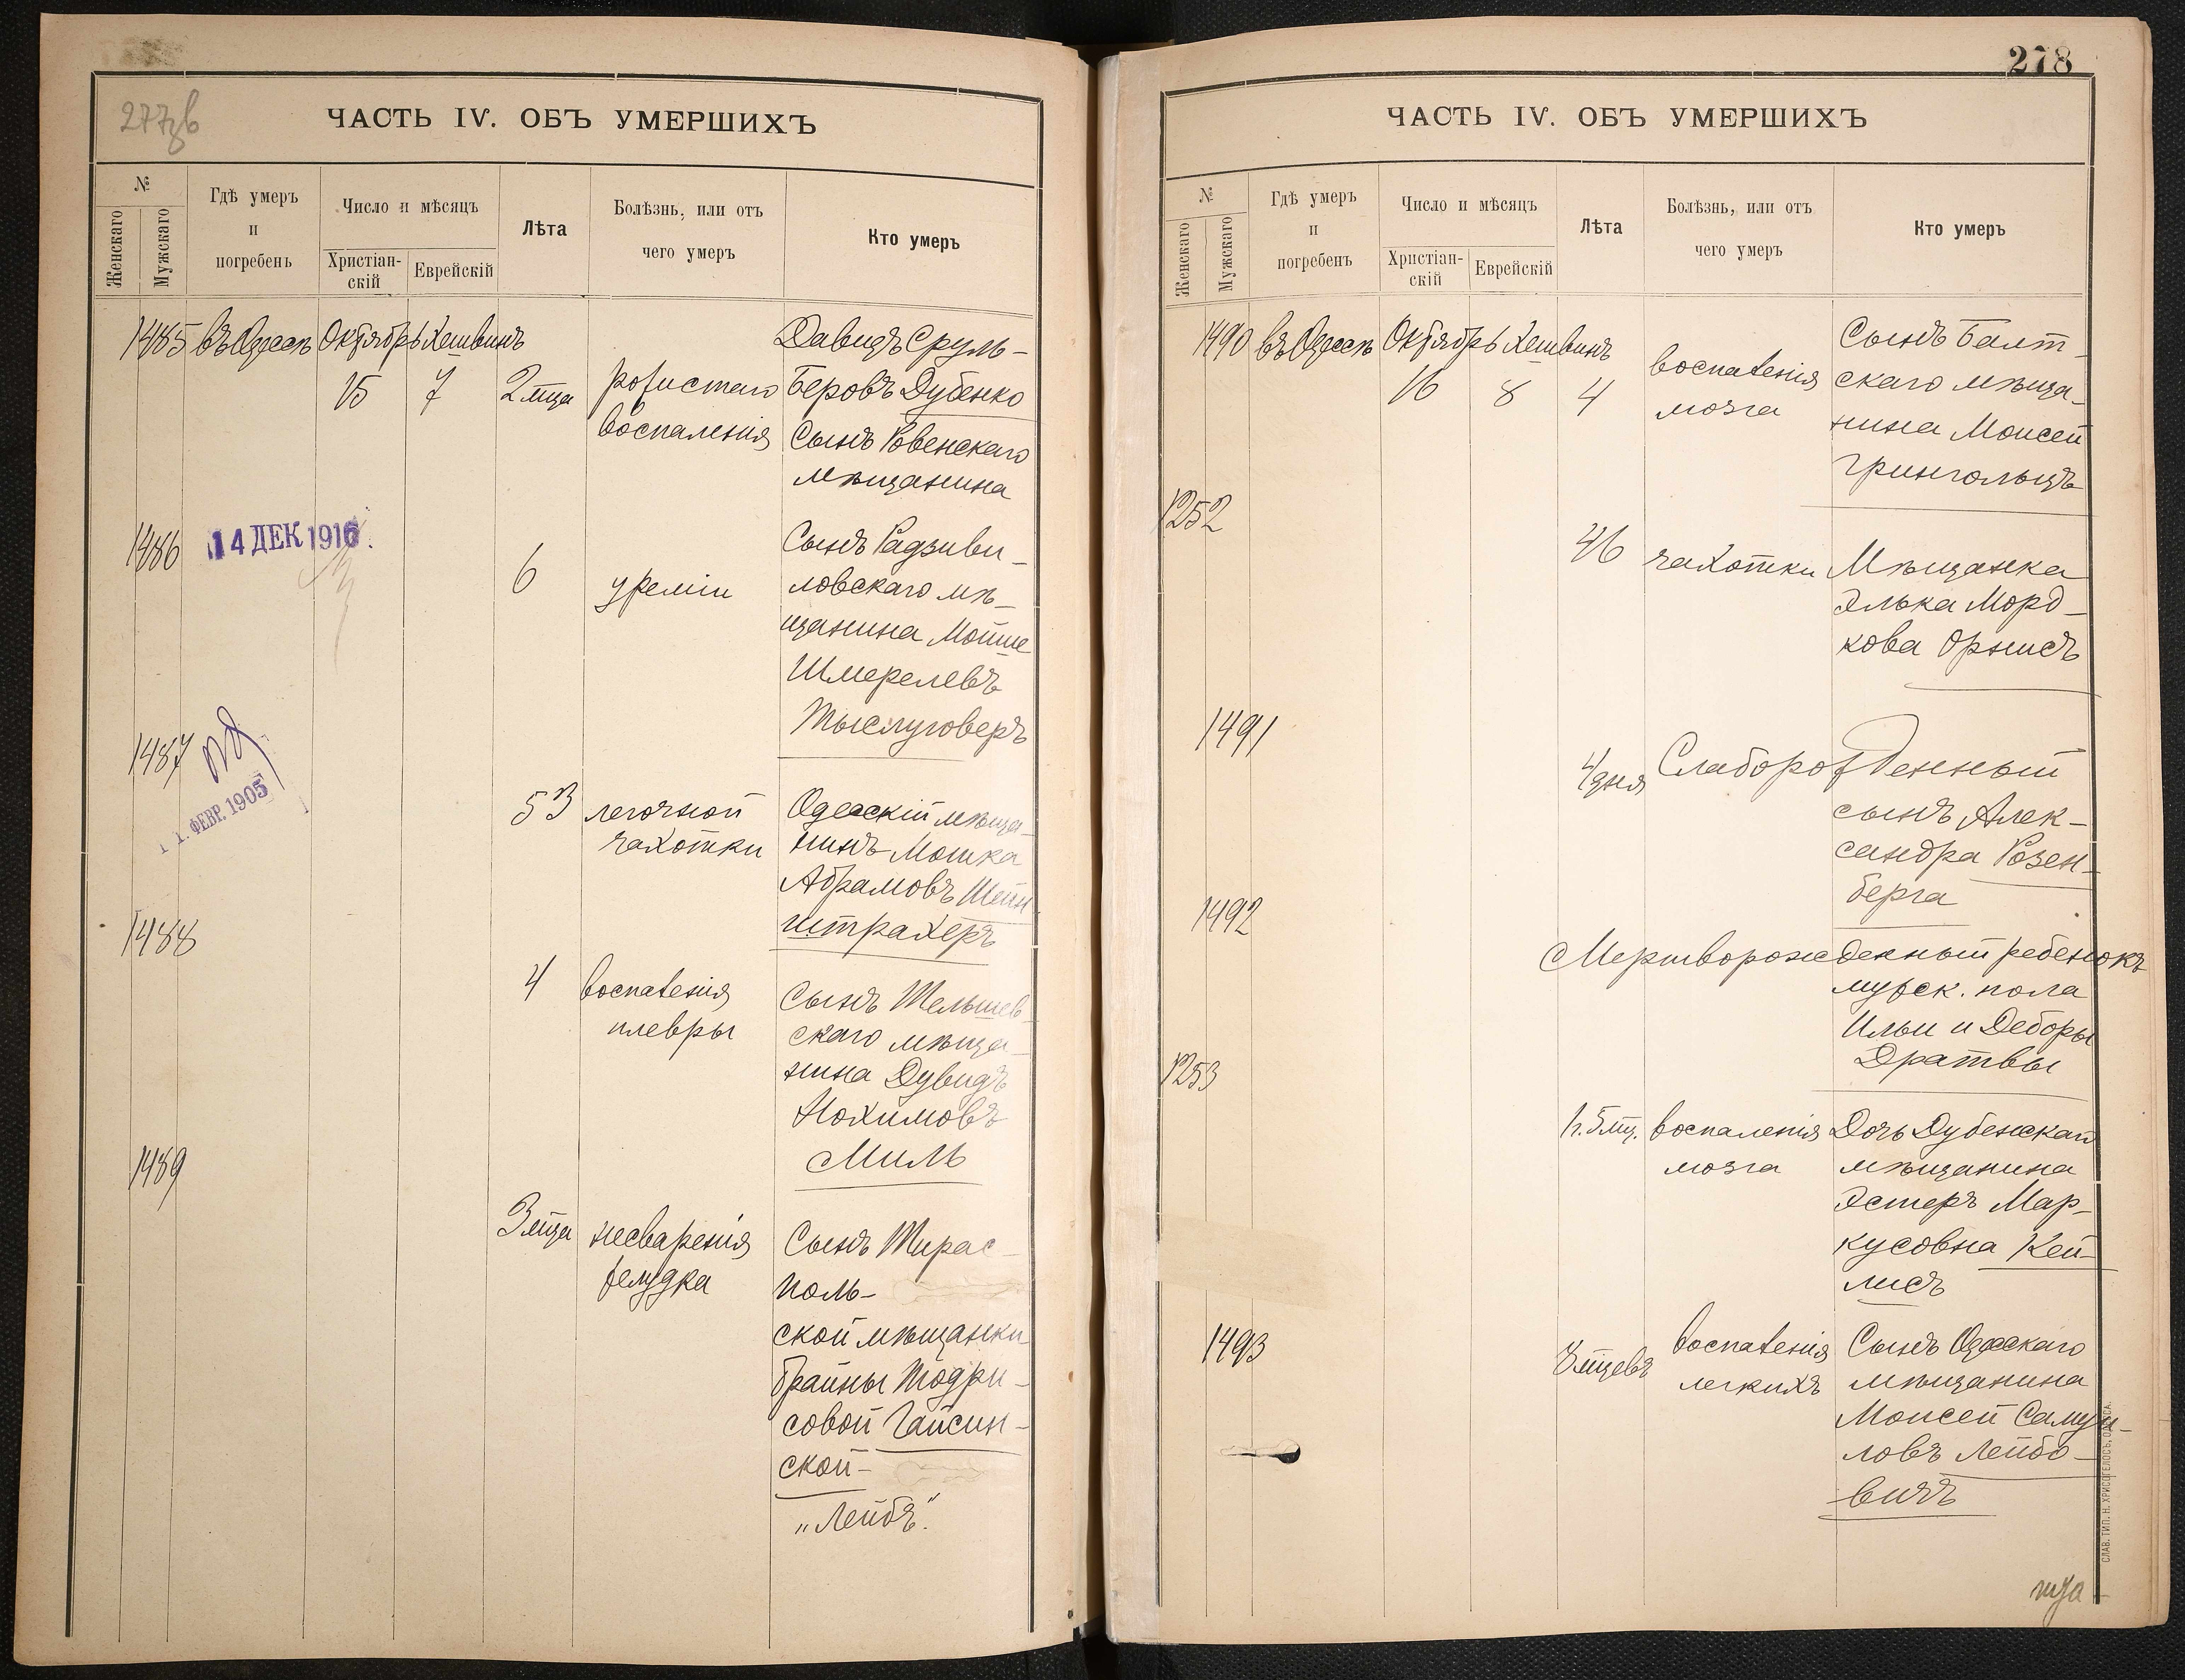 277зв
ЧАСТЬ IV. ОБЪ УМЕРШИХЪ
№
Женскаго
Мужскаго
Гдѣ умеръ
и
погребенъ
Число и мѣсяцъ
Христіан-
скій
Еврейскій
Лѣта
Болѣзнь, или отъ
чего умеръ
Кто умеръ
1485 въ Одессѣ Октябрь Хешвинъ Давидъ Сруль-
15 7 2 мца рожистаго Беровъ Дубенко
воспаленія Сынъ Ровенскаго
мѣщанина
1486 14 ДЕК 1916 Сынъ Радзиви-
6 уреміи ловскаго мѣ-
щанина Мошке
Шмерелевъ
Тыслуговеръ
1487
1. ФЕВР. 1905
53 легочной Одесскій мѣща-
чахотки нинъ Мошка
Абрамовъ Шейн
штрахеръ
1488
4 воспаленія Сынъ Тельшев-
плевры скаго мѣща-
нина Дувидъ
Нохимовъ
Миль
1489
3 мца несваренія Сынъ Тирас-
желудка поль-
ской мѣщанки
Брайны Тодри-
совой Гайсин-
ской-
„Лейбъ".
278
ЧАСТЬ IV. ОБЪ УМЕРШИХЪ
№
Женскаго
Мужскаго
Гдѣ умеръ
и
погребенъ
Число и мѣсяцъ
Христіан-
скій
Еврейскій
Лѣта
Болѣзнь, или отъ
чего умеръ
Кто умеръ
1490 въ Одессѣ Октябрь Хешвинъ Сынъ Балт-
16 8 4 воспаленія скаго мѣща-
мозга нина Моисей
Грингольцъ
1252
46 чахотки Мѣщанка
Элька Морд-
кова Орнисъ
1491
4 дня Слаборожденный
сынъ Алек-
сандра Розен-
берга
1492
Мертворожденный ребенокъ
мужск. пола
Ильи и Деборы
Дратвы
1253
1г. 5мц. воспаленія Дочь Дубенскаго
мозга мѣщанина
Эстеръ Мар-
кусовна Кей-
лисъ
1493 воспаленія Сынъ Одесскаго
8 мцевъ легкихъ мѣщанина
Моисей Самуи-
ловъ Лейбо-
вичъ
СЛАВ. ТИП. Н. ХРИСОГЕЛОСЪ, ОДЕССА.